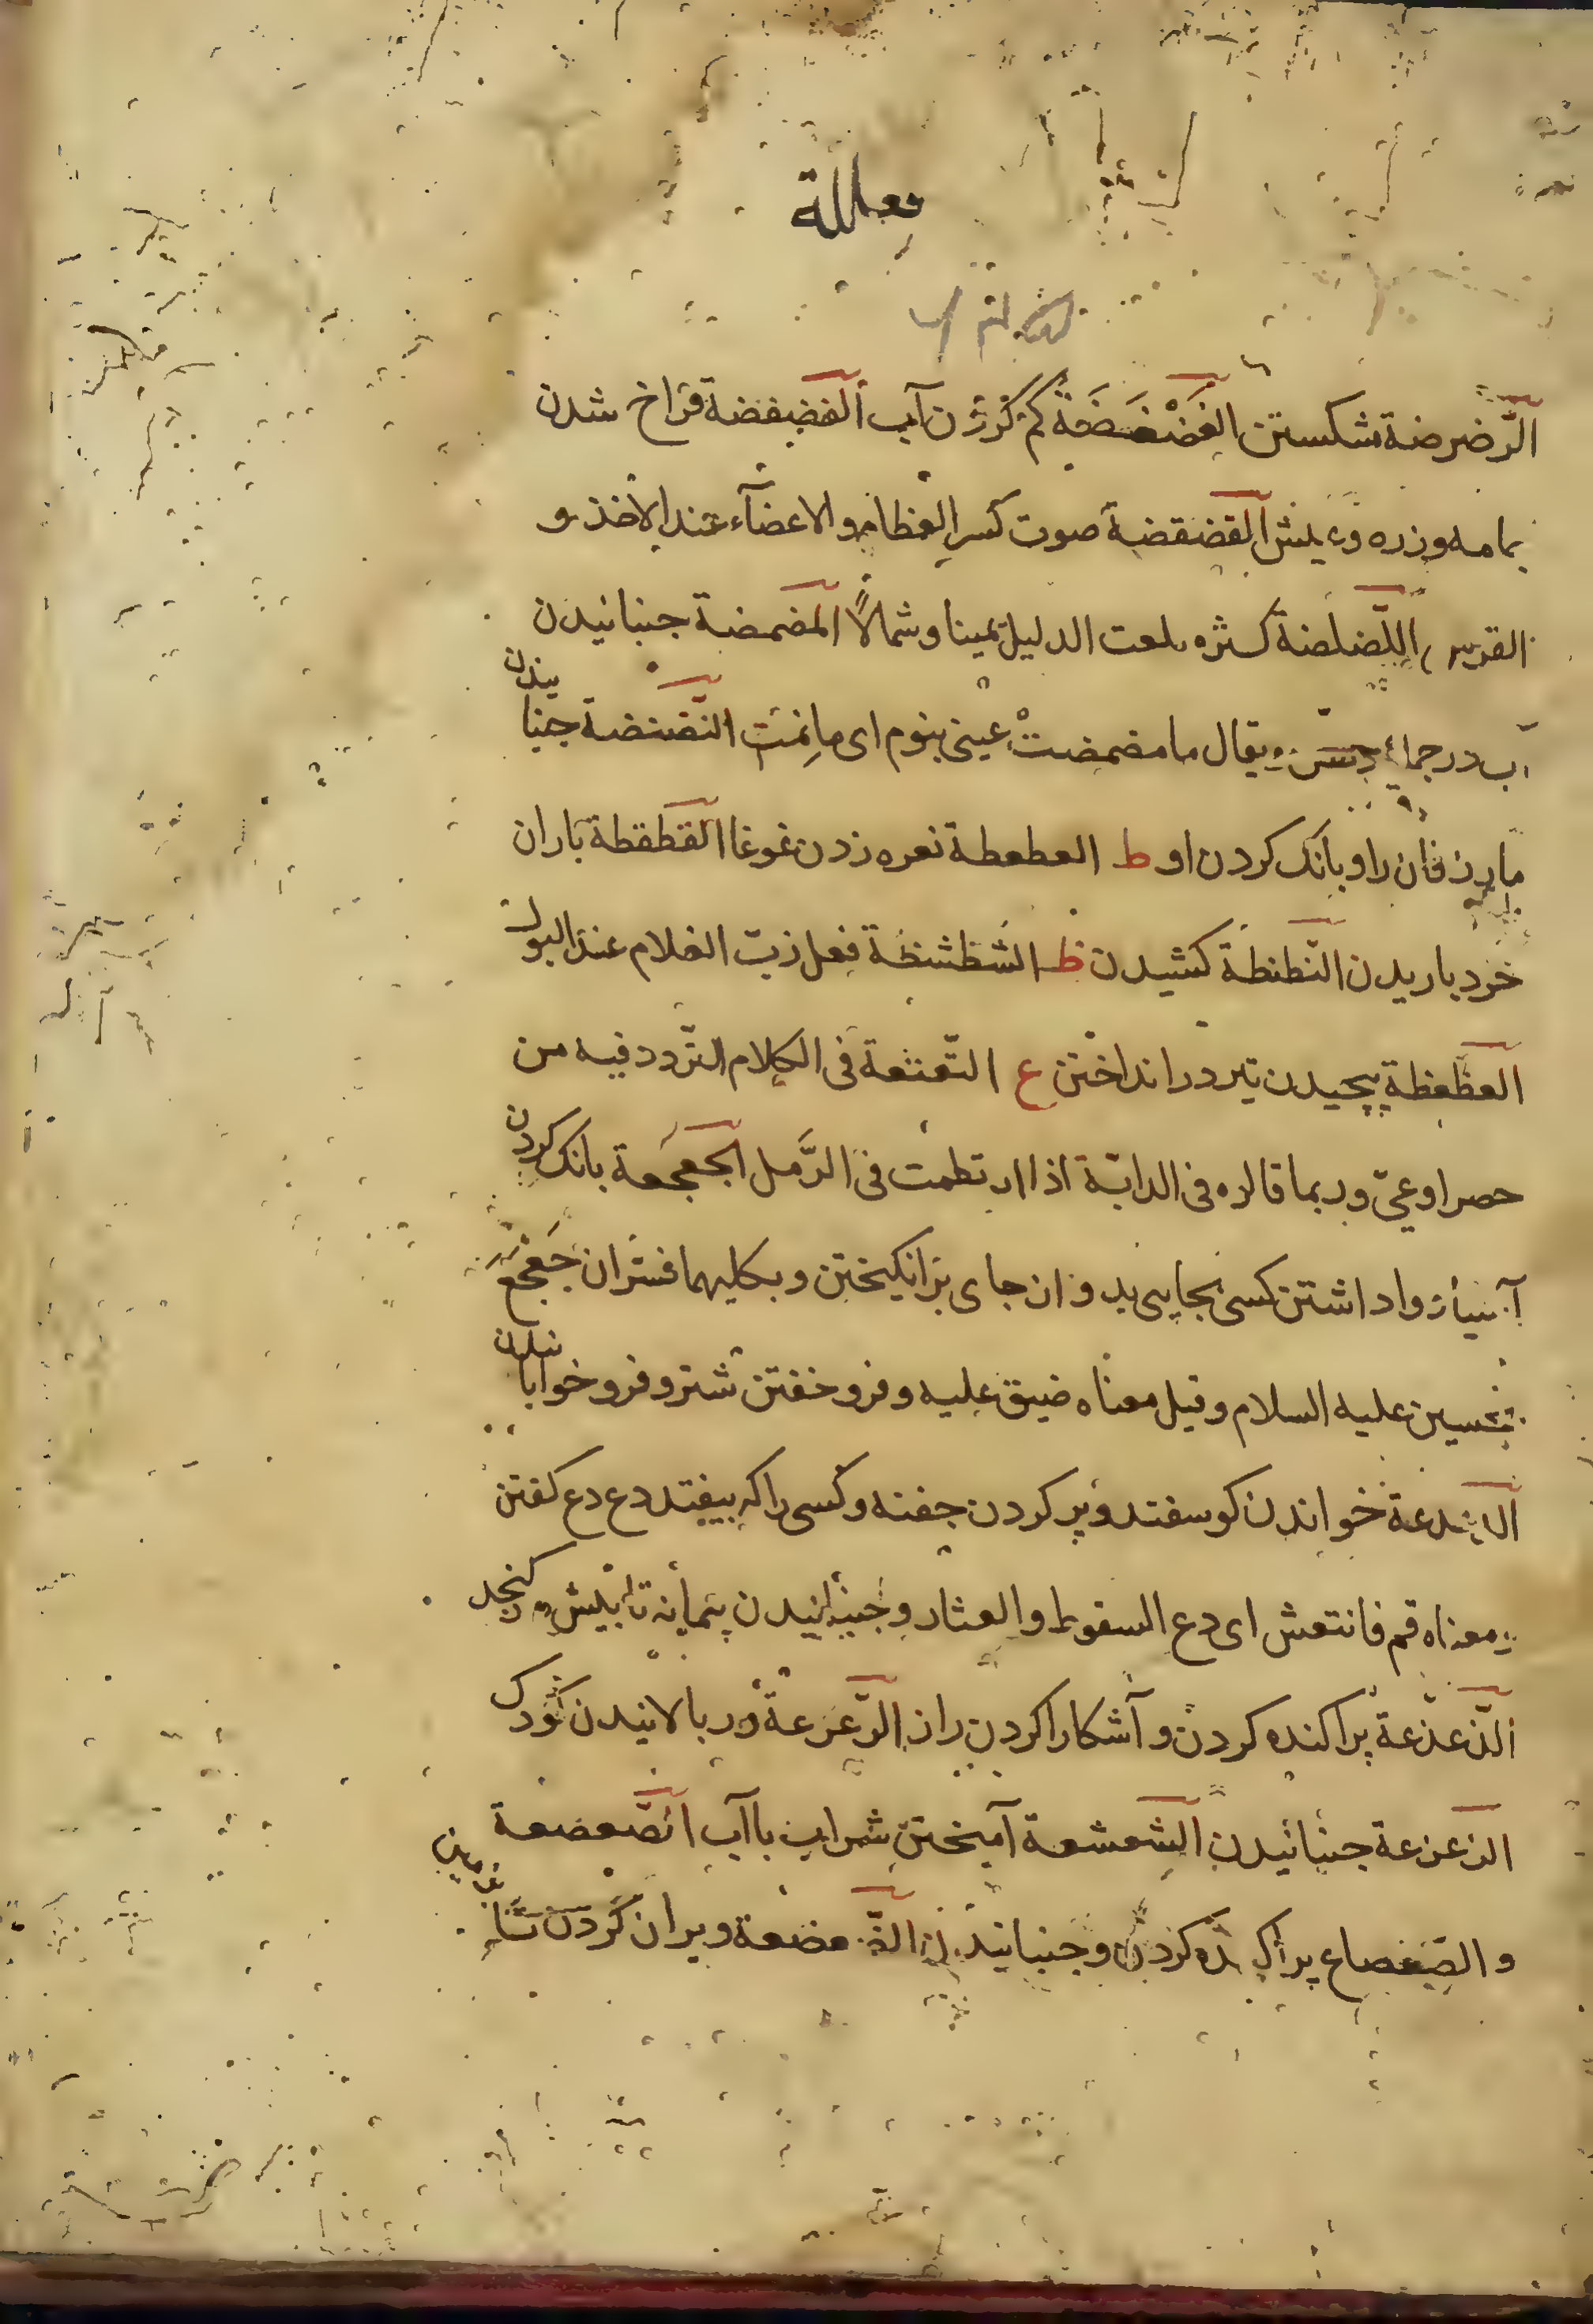 فعللة
الرّضرضة شكستن الغَضْغَضَةُ كم كردن آب الفضفضة فراخ شدن
جامه وزره وعيش القضقضة صوت كسر العظام والاعضآء عند الاخذ و
اللّضلضة كثره تلعت الدليل يمينا وشمالًا المضمضة جنبانيدن
آب در يقال ما مضمضتْ عينى بنوم اى ما نِمْتُ النّضنضة جنبانيدن
مار زفان را وبانک کردن او ط العطعطة نعره زدن غوغا القطقطة باران
خرد باريدن النّطنطة كشيدن ظ الشظشظة فعل زبّ الغلام عند البول
العظعظة پيچيدن تير در انداختن ع التّعتعة فى الكلام التردد فيه من
حصر او عىّ وربما قالوه فى الدابّة اذا ارتطمت فى الرَّمل الجعجعة بانک کردن
آسيا و اداشتن كسى بجايى بد وزان جاى برانكيختن وبكليهما فسّر ان جَعْجِعْ
بحسين عليه السلام وقيل معناه ضيق عليه وفرو خفتن شتر وفرو خوابانيدن
خواندن كوسفند وپر كردن جفنه وكسى را كه بيفتد دع دع كفتن
ومعناه قم فانتعش اى دع السقوط والعثار وجنبانيدن پيمانه تا بيش در كنجد
الذّعذعة پراكنده كردن وآشكارا كردن راز الرّعرعة ور بالانيدن كودک
الزعزعة جنبانيدن الشعشعة آميختن شراب با آب الصّعصعة
والصعصاع پراكنده كردن وجنبانيدن الضّعضعة ويران كردن بنا